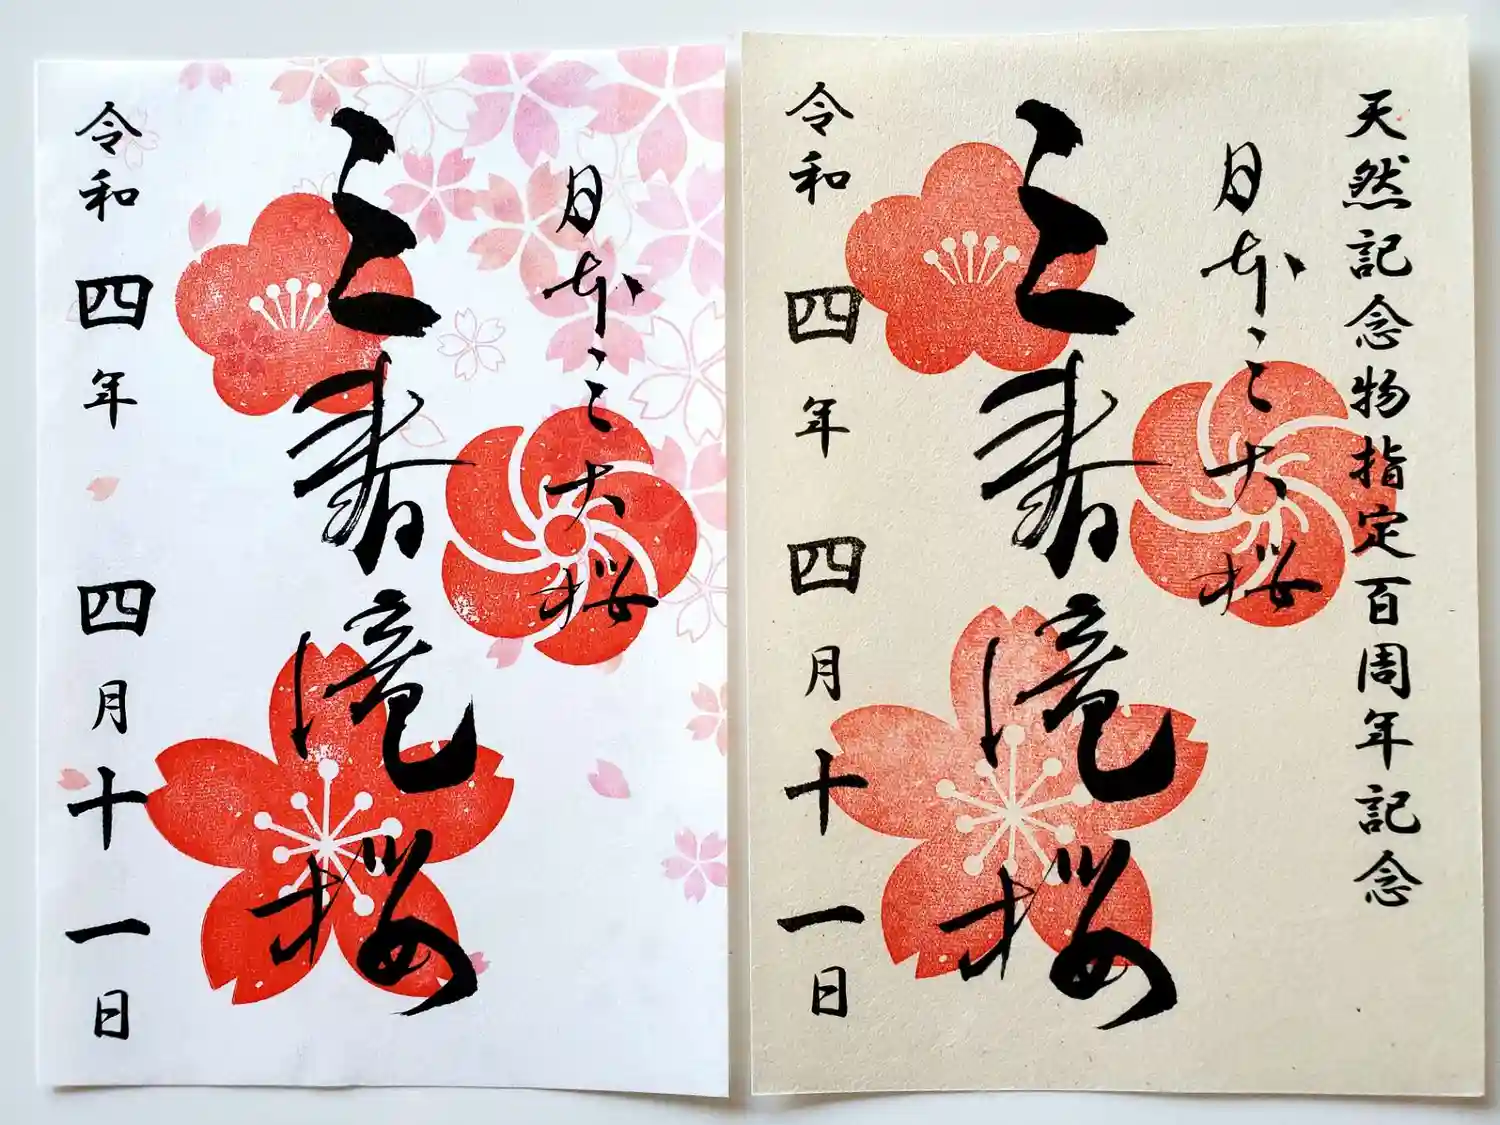 日本三大桜
三春滝桜
令和四年 四月十一日
天然記念物指定百周年記念
日本三大桜
三春滝桜
令和四年 四月十一日